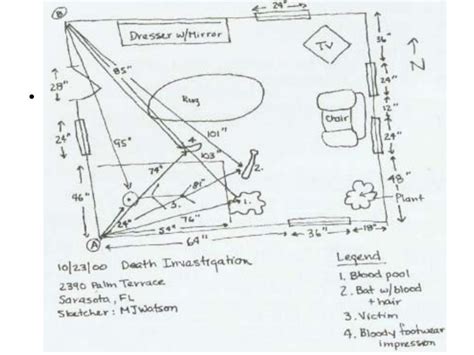 B
24"
Dresser w/Mirror
TV
36"
N
85"
24"
28"
Rug
12"
101"
Chair
4.
24"
95"
103"
24"
2.
74"
81"
48"
46"
3.
1.
Plant
24"
76"
54"
A
64"
36"
18"
10/23/00 Death Investigation
2390 Palm Terrace
Sarasota, FL
Sketcher: MJWatson
Legend
1. Blood pool
2. Bat w/blood
+ hair
3. Victim
4. Bloody footwear
impression